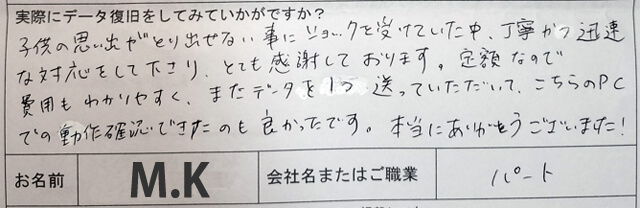 実際にデータ復旧をしてみていかがですか?
子供の思い出がとり出せない事にショックを受けていた中、丁寧かつ迅速
な対応をして下さり、とても感謝しております。定額なので
費用もわかりやすく、またデータを1つ送っていただいて、こちらのPC
での動作確認できたのも良かったです。本当にありがとうございました!
お名前 M.K 会社名またはご職業 パート